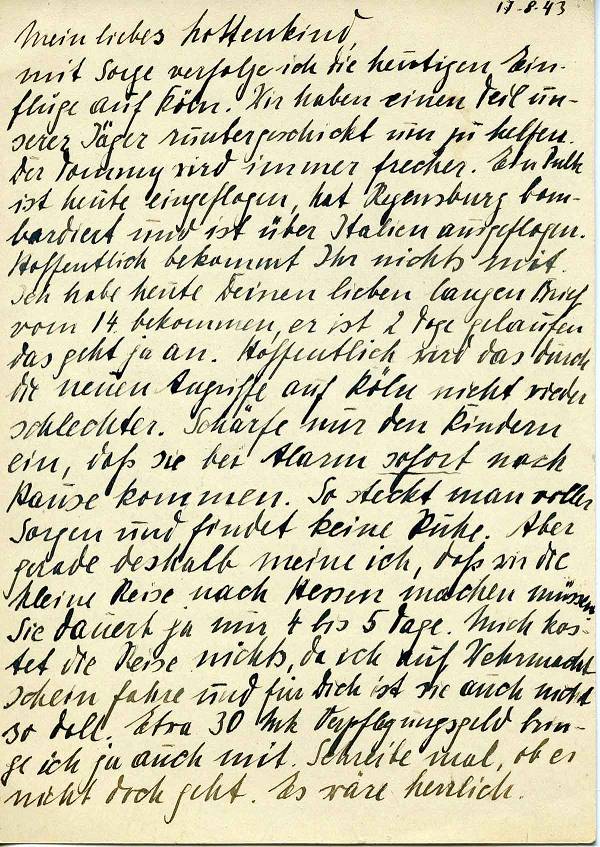 17.8.43
Mein liebes Hottenkind,
mit Sorge verfolge ich die heutigen Ein-
flüge auf Köln. Wir haben einen Teil un-
serer Jäger runtergeschickt um zu helfen.
Der Tommy wird immer frecher. Ein Pulk
ist heute eingeflogen, hat Regensburg bom-
bardiert und ist über Italien ausgeflogen.
Hoffentlich bekommt Ihr nichts mit.
Ich habe heute Deinen lieben langen Brief
vom 14. bekommen, er ist 2 Tage gelaufen
das geht ja an. Hoffentlich wird das durch
die neuen Angriffe auf Köln nicht wieder
schlechter. Schärfe nur den Kindern
ein, daß sie bei Alarm sofort nach
Hause kommen. So steckt man voller
Sorgen und findet keine Ruhe. Aber
gerade deshalb meine ich, daß wir die
kleine Reise nach Hessen machen müssen.
Sie dauert ja nur 4 bis 5 Tage. Mich kos-
tet die Reise nichts, da ich auf Wehrmacht
schein fahre und für Dich ist sie auch nicht
so doll. Etwa 30 Mk Verpflegungsgeld brin-
ge ich ja auch mit. Schreibe mal, ob es
nicht doch geht. Es wäre herrlich.